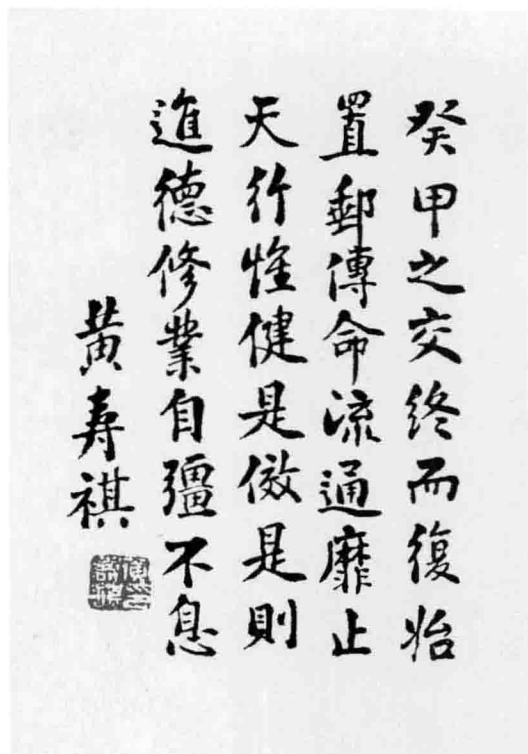 癸甲之交終而復始
置郵傳命流通靡止
天行惟健是倣是則
進德修業自彊不息
黃壽祺